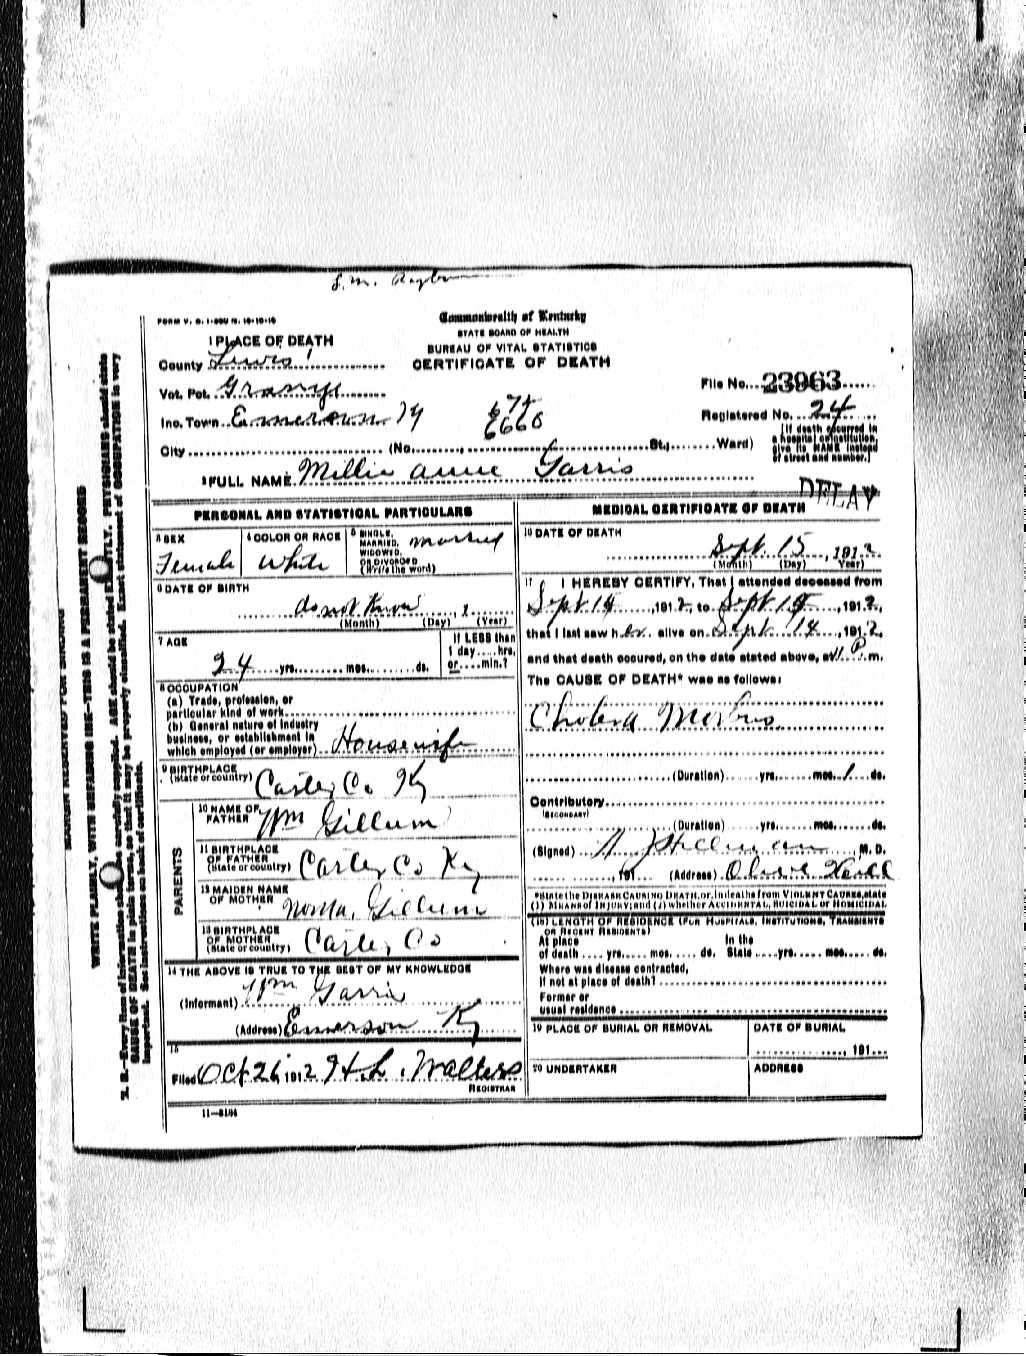 S. M. Rayburn
FORM V. S. 1-50M N. 10-10-10
Commonwealth of Kentucky
STATE BOARD OF HEALTH
BUREAU OF VITAL STATISTICS
CERTIFICATE OF DEATH
1 PLACE OF DEATH
County Lewis
Vot. Pct. Grange
Inc. Town Emerson Ky
City (No. St.; Ward)
674
6660
File No. 23963
Registered No. 24
[If death occurred in
a hospital or institution,
give its NAME instead
of street and number.]
2 FULL NAME Millie Anne Garris
DELAY
PERSONAL AND STATISTICAL PARTICULARS
3 SEX
Female
4 COLOR OR RACE
White
5 SINGLE,
MARRIED,
WIDOWED,
OR DIVORCED
(Write the word)
married
6 DATE OF BIRTH
do not Know , 1
(Month) (Day) (Year)
7 AGE
24 yrs. mos. ds.
If LESS than
1 day hrs.
or min.?
8 OCCUPATION
(a) Trade, profession, or
particular kind of work
(b) General nature of industry
business, or establishment in
which employed (or employer) Housewife
9 BIRTHPLACE
(State or country) Carter Co Ky
PARENTS
10 NAME OF
FATHER Wm Gillum
11 BIRTHPLACE
OF FATHER
(State or country) Carter Co Ky
12 MAIDEN NAME
OF MOTHER Gillum
13 BIRTHPLACE
OF MOTHER
(State or country) Carter Co
14 THE ABOVE IS TRUE TO THE BEST OF MY KNOWLEDGE
(Informant) Wm Garris
(Address) Emerson Ky
15
Filed Oct 26, 1912 H. L. Walters
REGISTRAR
11—3184
MEDICAL CERTIFICATE OF DEATH
16 DATE OF DEATH
Sept. 15, 1912
(Month) (Day) (Year)
17 I HEREBY CERTIFY, That I attended deceased from
Sept 14, 1912, to Sept 15, 1912,
that I last saw her alive on Sept 14, 1912,
and that death occured, on the date stated above, at 11 P.m.
The CAUSE OF DEATH* was as follows:
Cholera Morbus
(Duration) yrs. mos. 1 ds.
Contributory
(SECONDARY)
(Duration) yrs. mos. ds.
(Signed) M.D.
, 191 (Address) Olive Hill
*State the DISEASE CAUSING DEATH, or, in deaths from VIOLENT CAUSES, state
(1) MEANS OF INJURY; and (2) whether ACCIDENTAL, SUICIDAL or HOMICIDAL
(18) LENGTH OF RESIDENCE (FOR HOSPITALS, INSTITUTIONS, TRANSIENTS
OR RECENT RESIDENTS)
At place In the
of death yrs. mos. ds. State yrs. mos. ds.
Where was disease contracted,
if not at place of death?
Former or
usual residence
19 PLACE OF BURIAL OR REMOVAL
DATE OF BURIAL
, 191
20 UNDERTAKER
ADDRESS
WRITE PLAINLY, WITH UNFADING INK—THIS IS A PERMANENT RECORD
N. B.—Every item of information should be carefully supplied. AGE should be stated EXACTLY. PHYSICIANS should state
CAUSE OF DEATH in plain terms, so that it may be properly classified. Exact statement of OCCUPATION is very
important. See instructions on back of certificate.